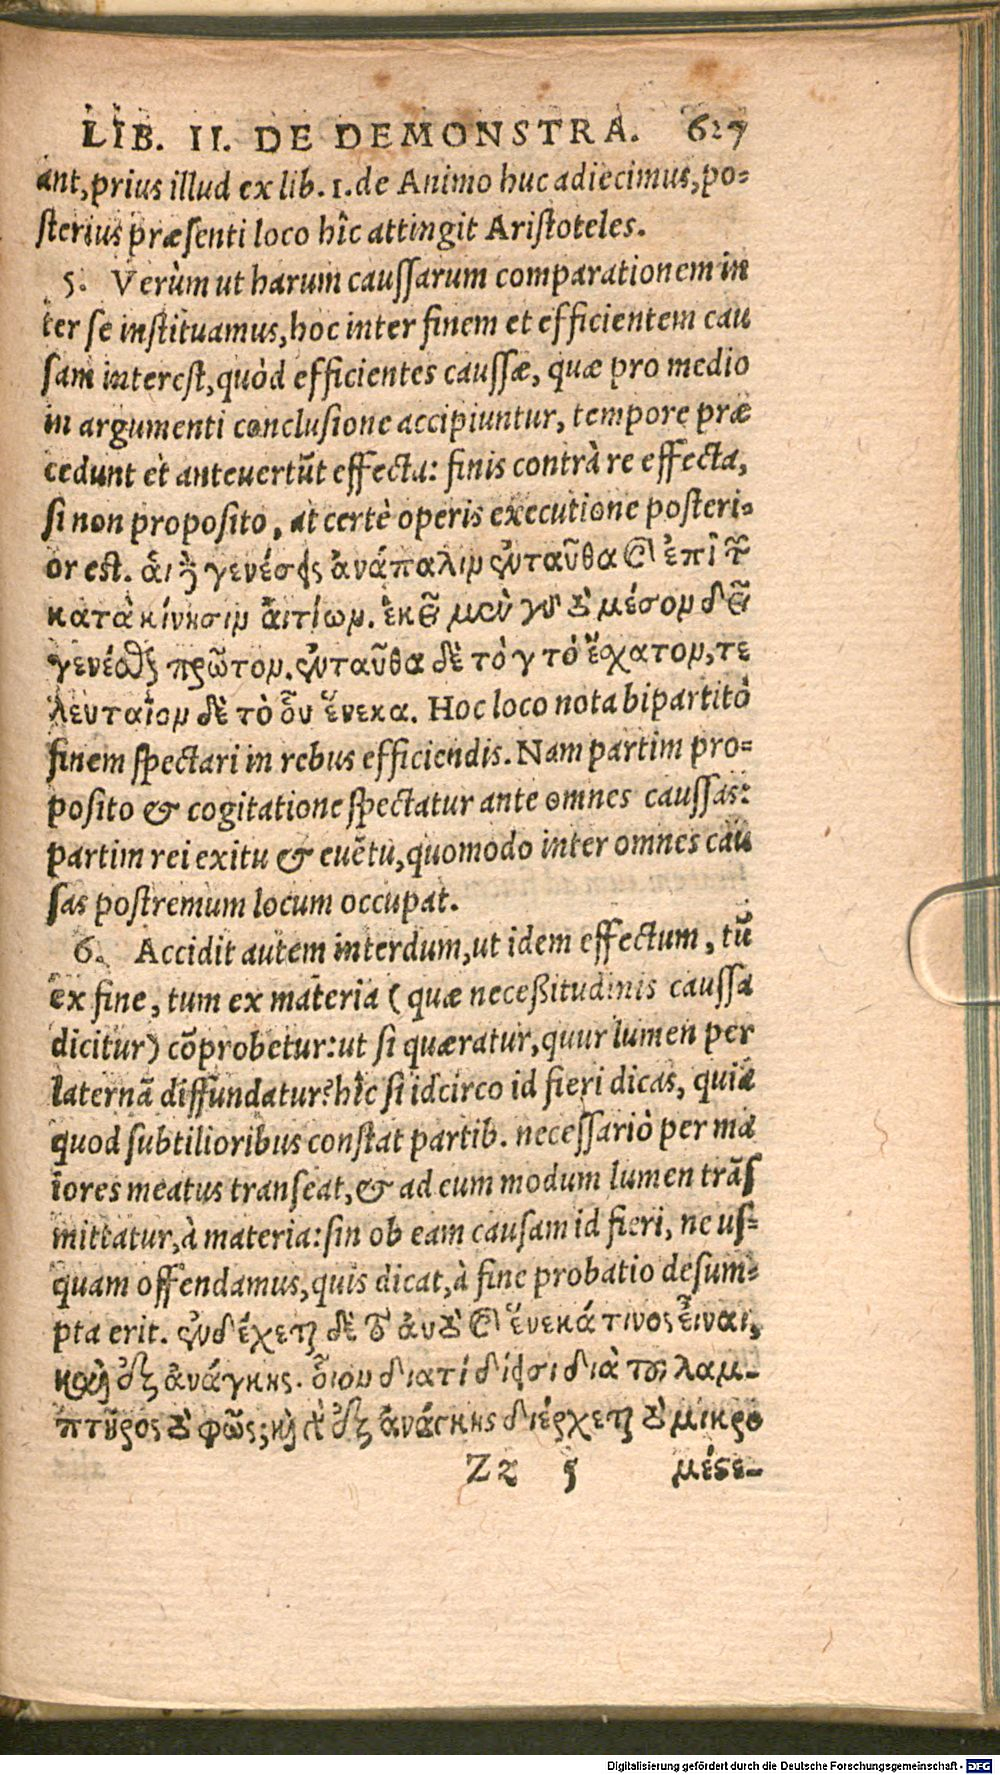 LIB. II. DE DEMONSTRA. 627
ant, prius illud ex lib. 1. de Animo huc adiecimus, po-
sterius præsenti loco hîc attingit Aristoteles.
5. Verùm ut harum caussarum comparationem in
ter se instituamus, hoc inter finem et efficientem cau
sam interest, quòd efficientes caussæ, quæ pro medio
in argumenti conclusione accipiuntur, tempore præ
cedunt et antevertũt effecta: finis contrà re effecta,
si non proposito, at certè operis executione posteri-
or est. ἁι ἢ γενέσεις ἀνάπαλιν ἐνταῦθα καὶ ἐπὶ τῶν
κατὰ κίνησιν ἀιτίων. ἐκεῖ μὲν γὸ τὸ μέσον δεῖ
γενέσθαι πρῶτον. ἐνταῦθα δὲ τὸ γ τὸ ἔχατον, τε
λευταῖον δὲ τὸ οὗ ἕνεκα. Hoc loco nota bipartitò
finem spectari in rebus efficiendis. Nam partim pro-
posito & cogitatione spectatur ante omnes caussas:
partim rei exitu & evẽtu, quomodo inter omnes cau
sas postremum locum occupat.
6. Accidit autem interdum, ut idem effectum, tũ
ex fine, tum ex materia (quæ necessitudinis caussa
dicitur) cõprobetur: ut si quæratur, quur lumen per
laternã diffundatur? hîc si idcirco id fieri dicas, quia
quod subtilioribus constat partib. necessariò per ma
iores meatus transeat, & ad eum modum lumen trãs
mittatur, à materia: sin ob eam causam id fieri, ne us-
quam offendamus, quis dicat, à fine probatio desum-
pta erit. ἐνδέχεται δὲ τὸ ἀυτὸ καὶ ἕνεκά τινος εἶναι,
καὶ ἐξ ἀνάγκης. οἷον διατί δίεισι διὰ τοῦ λαμ-
πτῆρος τὸ φῶς; καὶ γὸ ἐξ ἀνάγκης διέρχεται τὸ μικρο
Zz 5 μέσε-
Digitalisierung gefördert durch die Deutsche Forschungsgemeinschaft - DFG